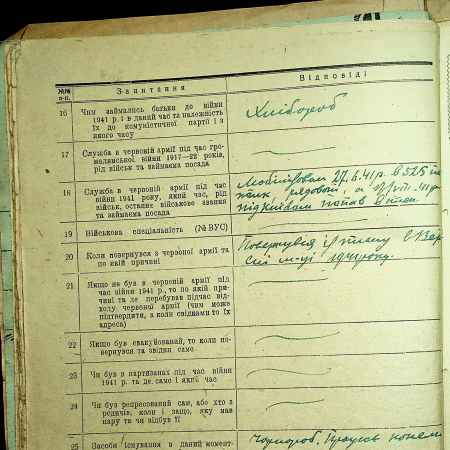 №№ п-п.
Запитання
Відповіді
16 Чим займались батьки до війни
1941 р. і в даний час та належність
їх до комуністичної партії і з
якого часу
Хлібороб
17 Служба в червоній армії під час гро-
мадянської війни 1917—22 років,
рід військ та займаєма посада
18 Служба в червоній армії під час
війни 1941 року, який час, рід
військ, останнє військове звання
та займаєма посада
Мобілізован 27.6.41р. в 525
рядовой, а
під Київом попав в плен.
19 Військова спеціальність (№ ВУС)
20 Коли повернувся з червоної армії та
по якій причині
Повернувся із плену в
м-ці 1941 року.
21 Якщо не був в червоній армії під
час війни 1941 р., то по якій при-
чині та де перебував підчас від-
ходу червоної армії (чим може
підтвердити, а коли свідками то їх
адреса)
22 Якщо був евакуйований, то коли по-
вернувся та звідки саме
23 Чи був в партизанах під час війни
1941 р. та де саме і який час
24 Чи був репресований сам, або хто з
родичів, коли і защо, яку мав
кару та чи відбув її
25 Засоби існування в даний момент-
Чорнороб.